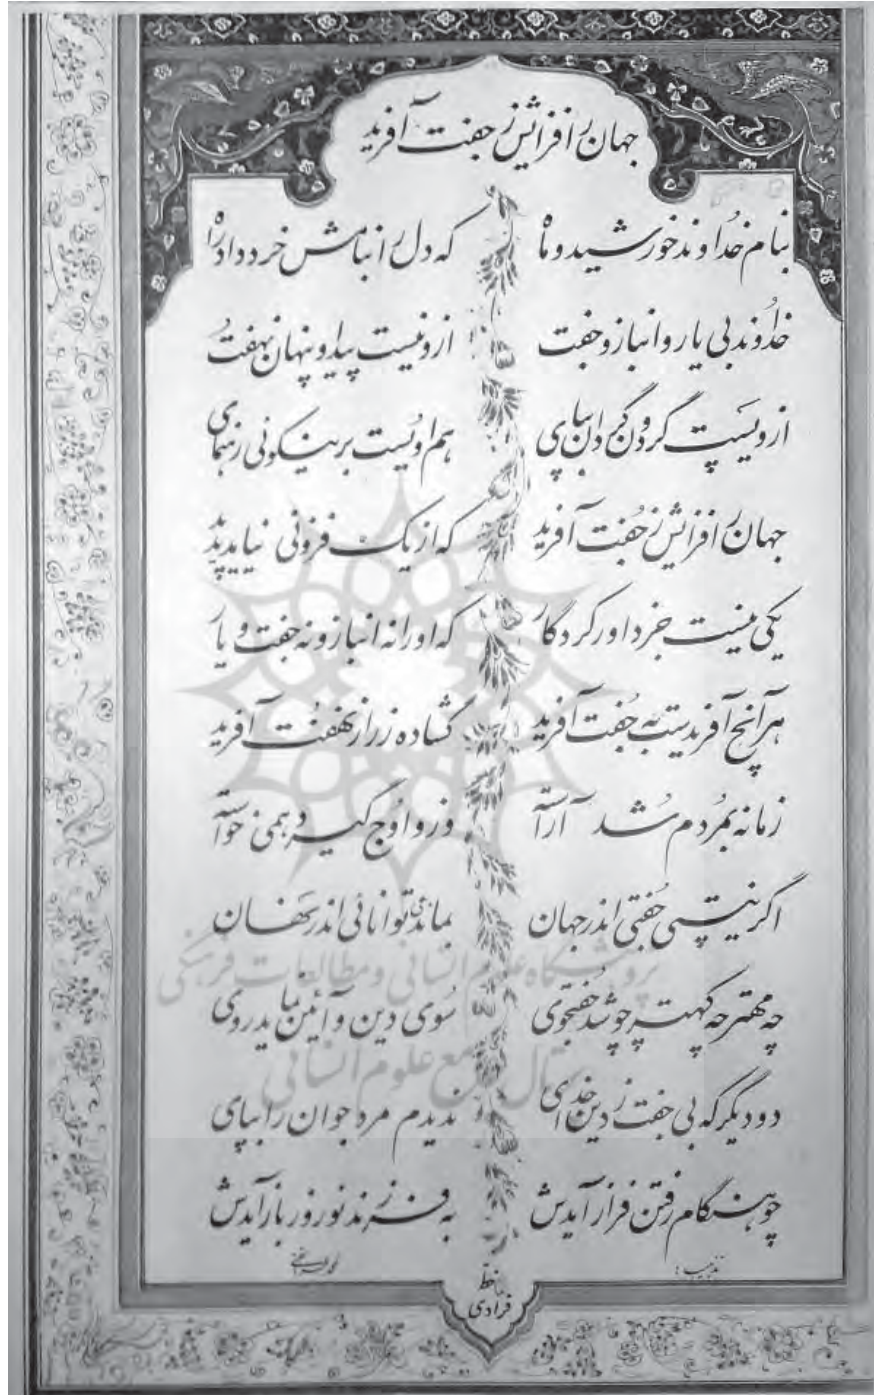 جهان را فزایش ز جفت آفرید
بنام خداوند خورشید و ماه که دل را بنامش خرد داد راه
خداوند بی یار و انباز و جفت ازو نیست پیدا و پنهان نهفت
ازویست گردون گردان بپای هم اویست بر نیکوئی رهنمای
جهان را فزایش ز جفت آفرید که از یک فزونی نیاید پدید
یکی نیست جز داور کردگار که او را نه انباز و نه جفت و یار
هر آنچ آفریدست به جفت آفرید گشاده ز راز نهفت آفرید
زمانه بمردم شد آراسته وز و اوج گیرد همی خواسته
اگر نیستی جفتی اندر جهان بماندی توانائی اندر نهان
چه مهتر چه کهتر چو شد جفتجوی سوی دین و آئین نماید روی
دو دیگر که بی جفت ز دین خدای ندیدم مرد جوان را بپای
چو هنگام رفتن فراز آیدش به فرزند نوروز باز آیدش
خط
فرادی
پژوهشگاه علوم انسانی و مطالعات فرهنگی
پرتال جامع علوم انسانی